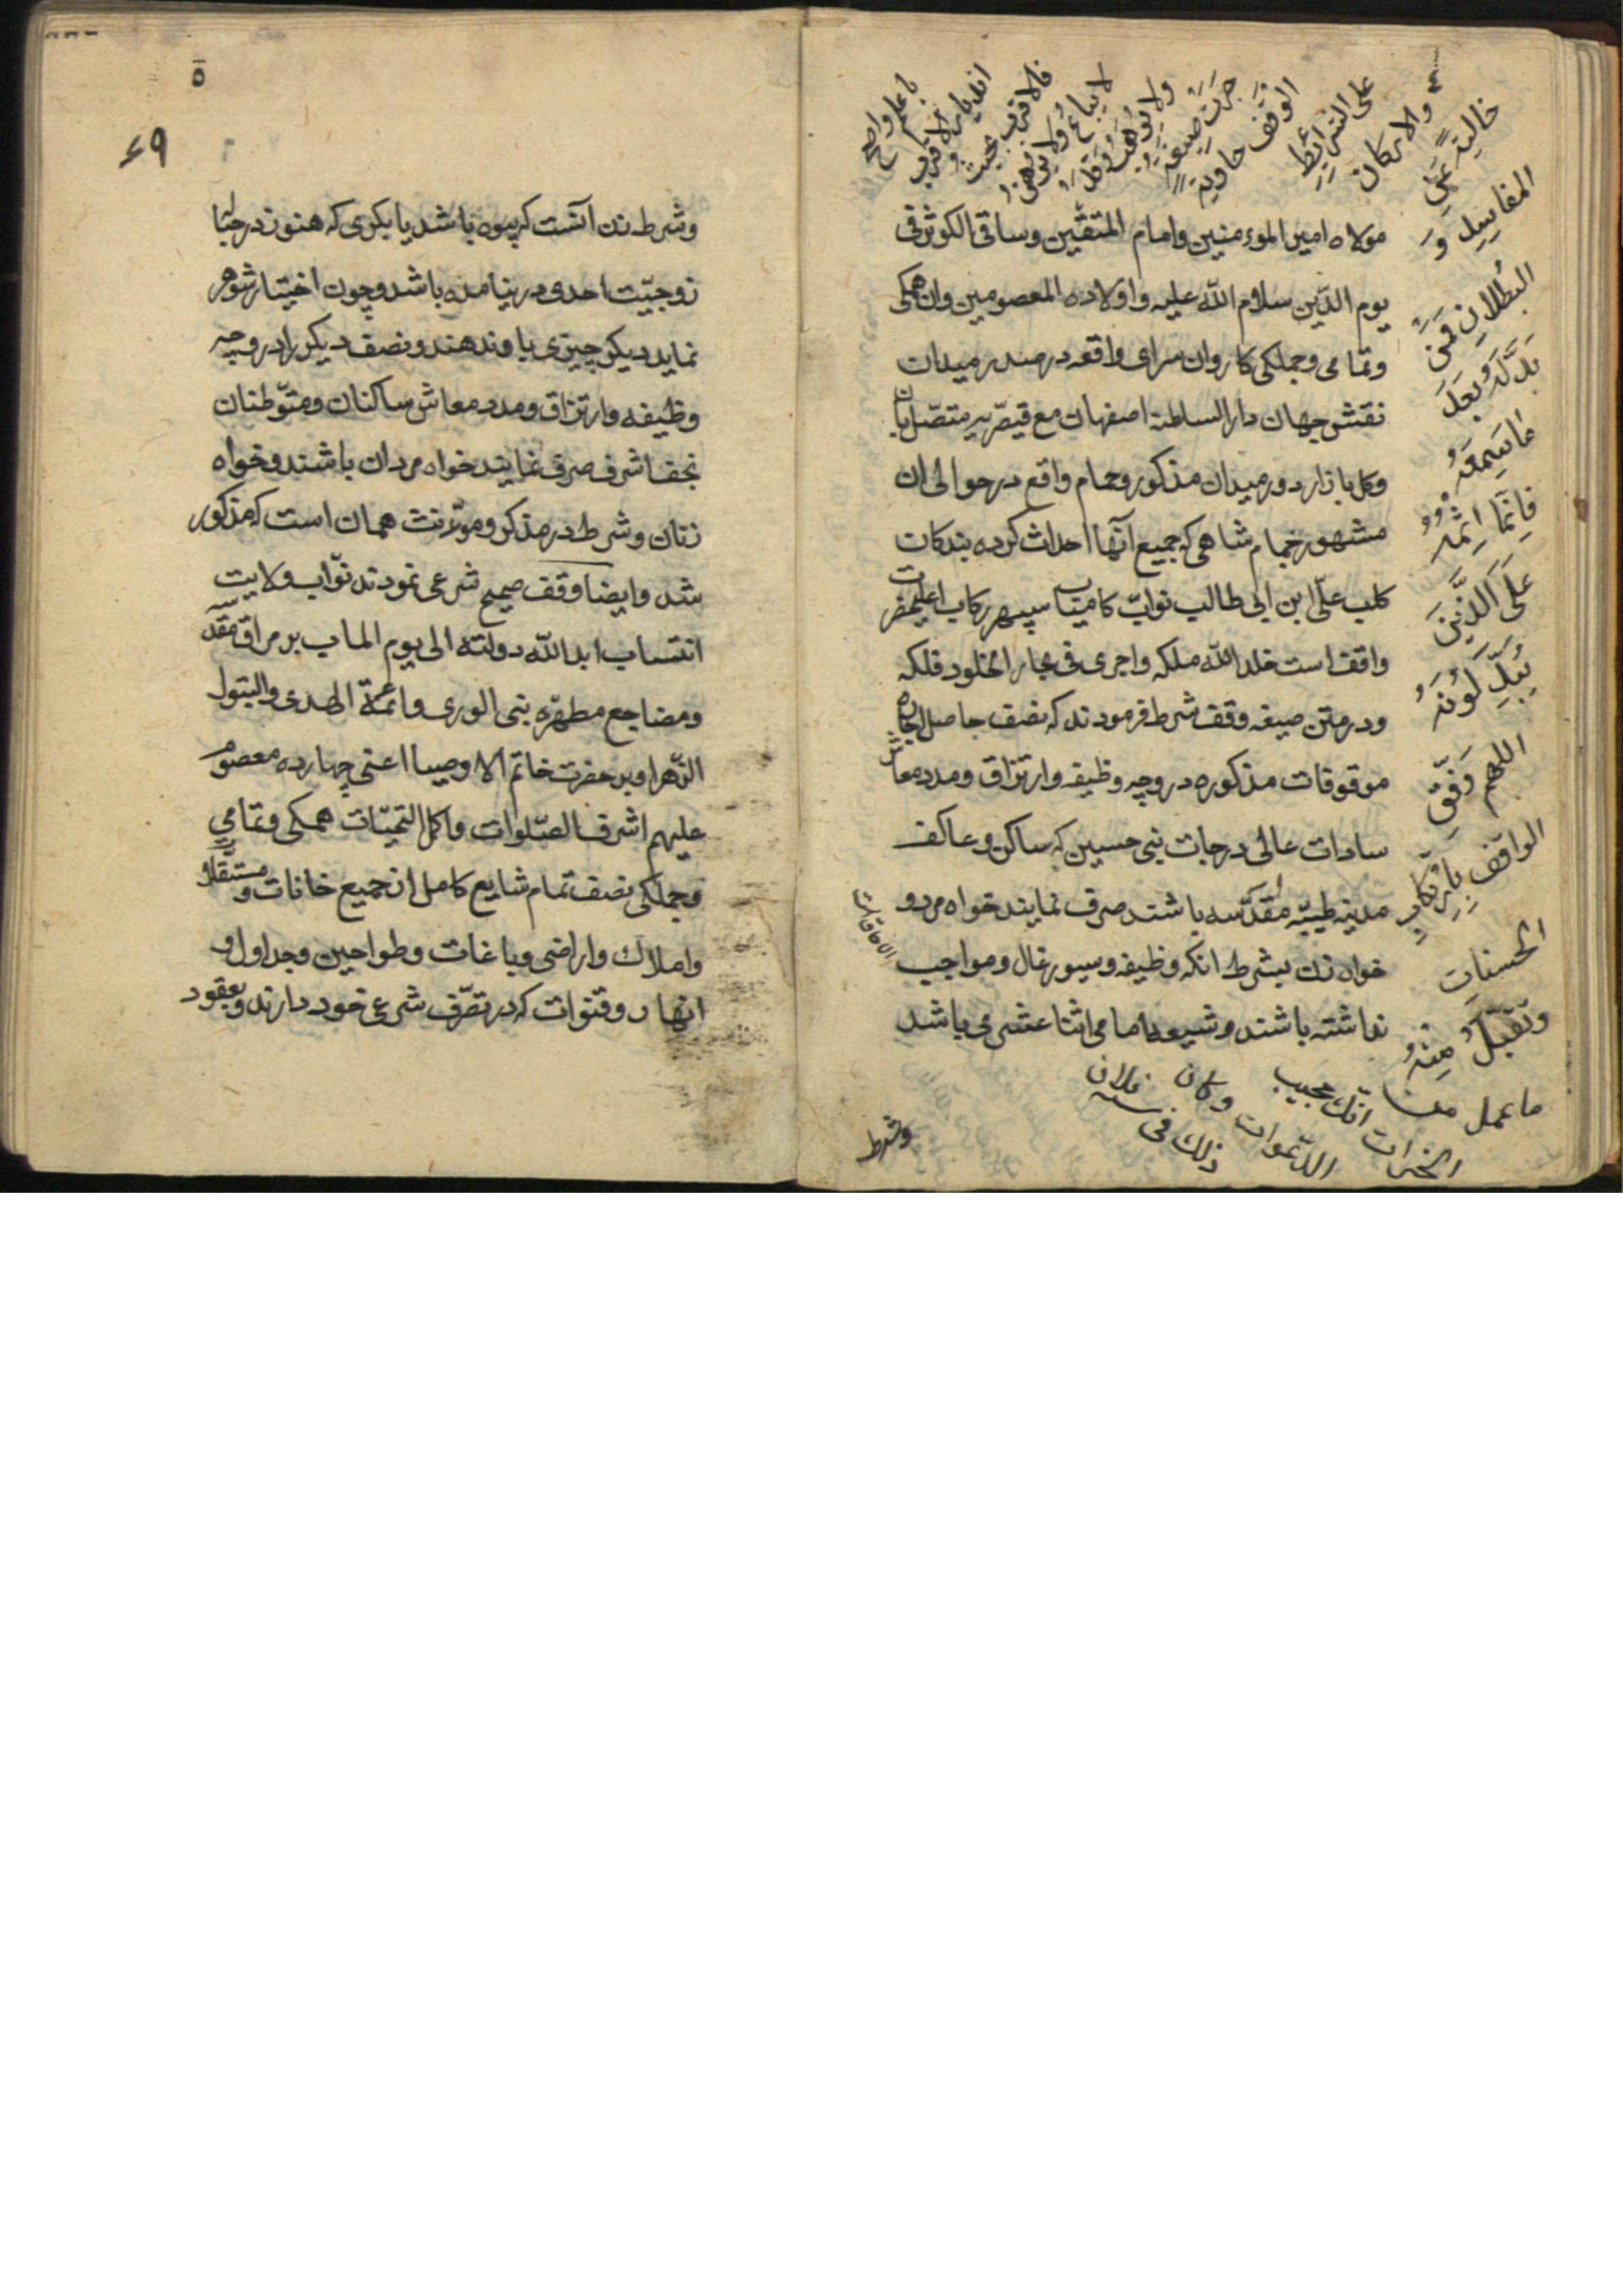 مولاه امیر المؤمنین وامام المتقین وساقی الکوثر فی
یوم الدّین سلام الله علیه واولاده المعصومین وان همکی
وتمامی وجملکی کاروان سرای واقعه در صدر میدان
نقش جهان دار السلطنه اصفهان مع قیصریه متصّل بان
وکل بازار دور میدان مذکور وحمام واقع در حوالی ان
مشهور بحمام شاهی که جمیع آنها احداث کرده بندکان
کلب علّی ابن ابی طالب نوابّ کامیاب سپهر رکاب اعلیحضرت
واقف است خلد الله ملکه واجری فی بحار الخلود فلکه
ودر متن صیغه وقف شرط فرمودند که نصف حاصل اجاره
موقوفات مذکوره در وجه وظیفه وارتزاق ومدد معاش
سادات عالی درجات بنی حسین که ساکن وعاکف
مدینه طیبّه مقدّسه باشند صرف نمایند خواه مرد و
خواه زن بشرط انکه وظیفه وسیورغال ومواجب
نداشته باشند وشیعه امامی اثنا عشری باشد
وشرط
باعلم واصلح
الوقف حاویة
علی الشرایط
والارکان
خالیة عن
المفاسد و
البطلان فمن
بدّله بعد
ما سمعه
فانّما اثمه
علی الّذین
یبدّلونه
اللهم وفّق
الواقف بارتکاب
الحسنات
وتقبّل منه
ما عمل من
الخیرات انّک مجیب
الدعوات وکان
ذلک فی سنه فلان
۵
۴۹
وشرط زن آنست که بیوه باشد یا بکری که هنوز در حبا
زوجیّت احدی در نیامده باشد وچون اختیار شوهر
نماید دیکر چیزی باو ندهند ونصف دیکر را در وجه
وظیفه وارتزاق ومدد معاش ساکنان ومتوّطنان
نجف اشرف صرف نمایند خواه مردان باشند وخواه
زنان وشرط در مذکر ومؤنث همان است که مذکور
شد وایضا وقف صحیح شرعی نمودند نوّاب ولایت
انتساب ابد الله دولته الی یوم الماب بر مراقد مقدسه
ومضاجع مطهّره بنی الوری وائمّة الهدی والبتول
الزّهرا وبر حضرت خاتم الاوصیا اعنی چهارده معصوم
علیهم اشرف الصّلوات واکمل التحیّات همکی وتمامی
وجملکی نصف تمام شایع کامل از جمیع خانات ومستقلاّت
واملاک واراضی وباغات وطواحین وجداول و
انهار وقنوات که در تصّرف شرعی خود دارند وبعقود